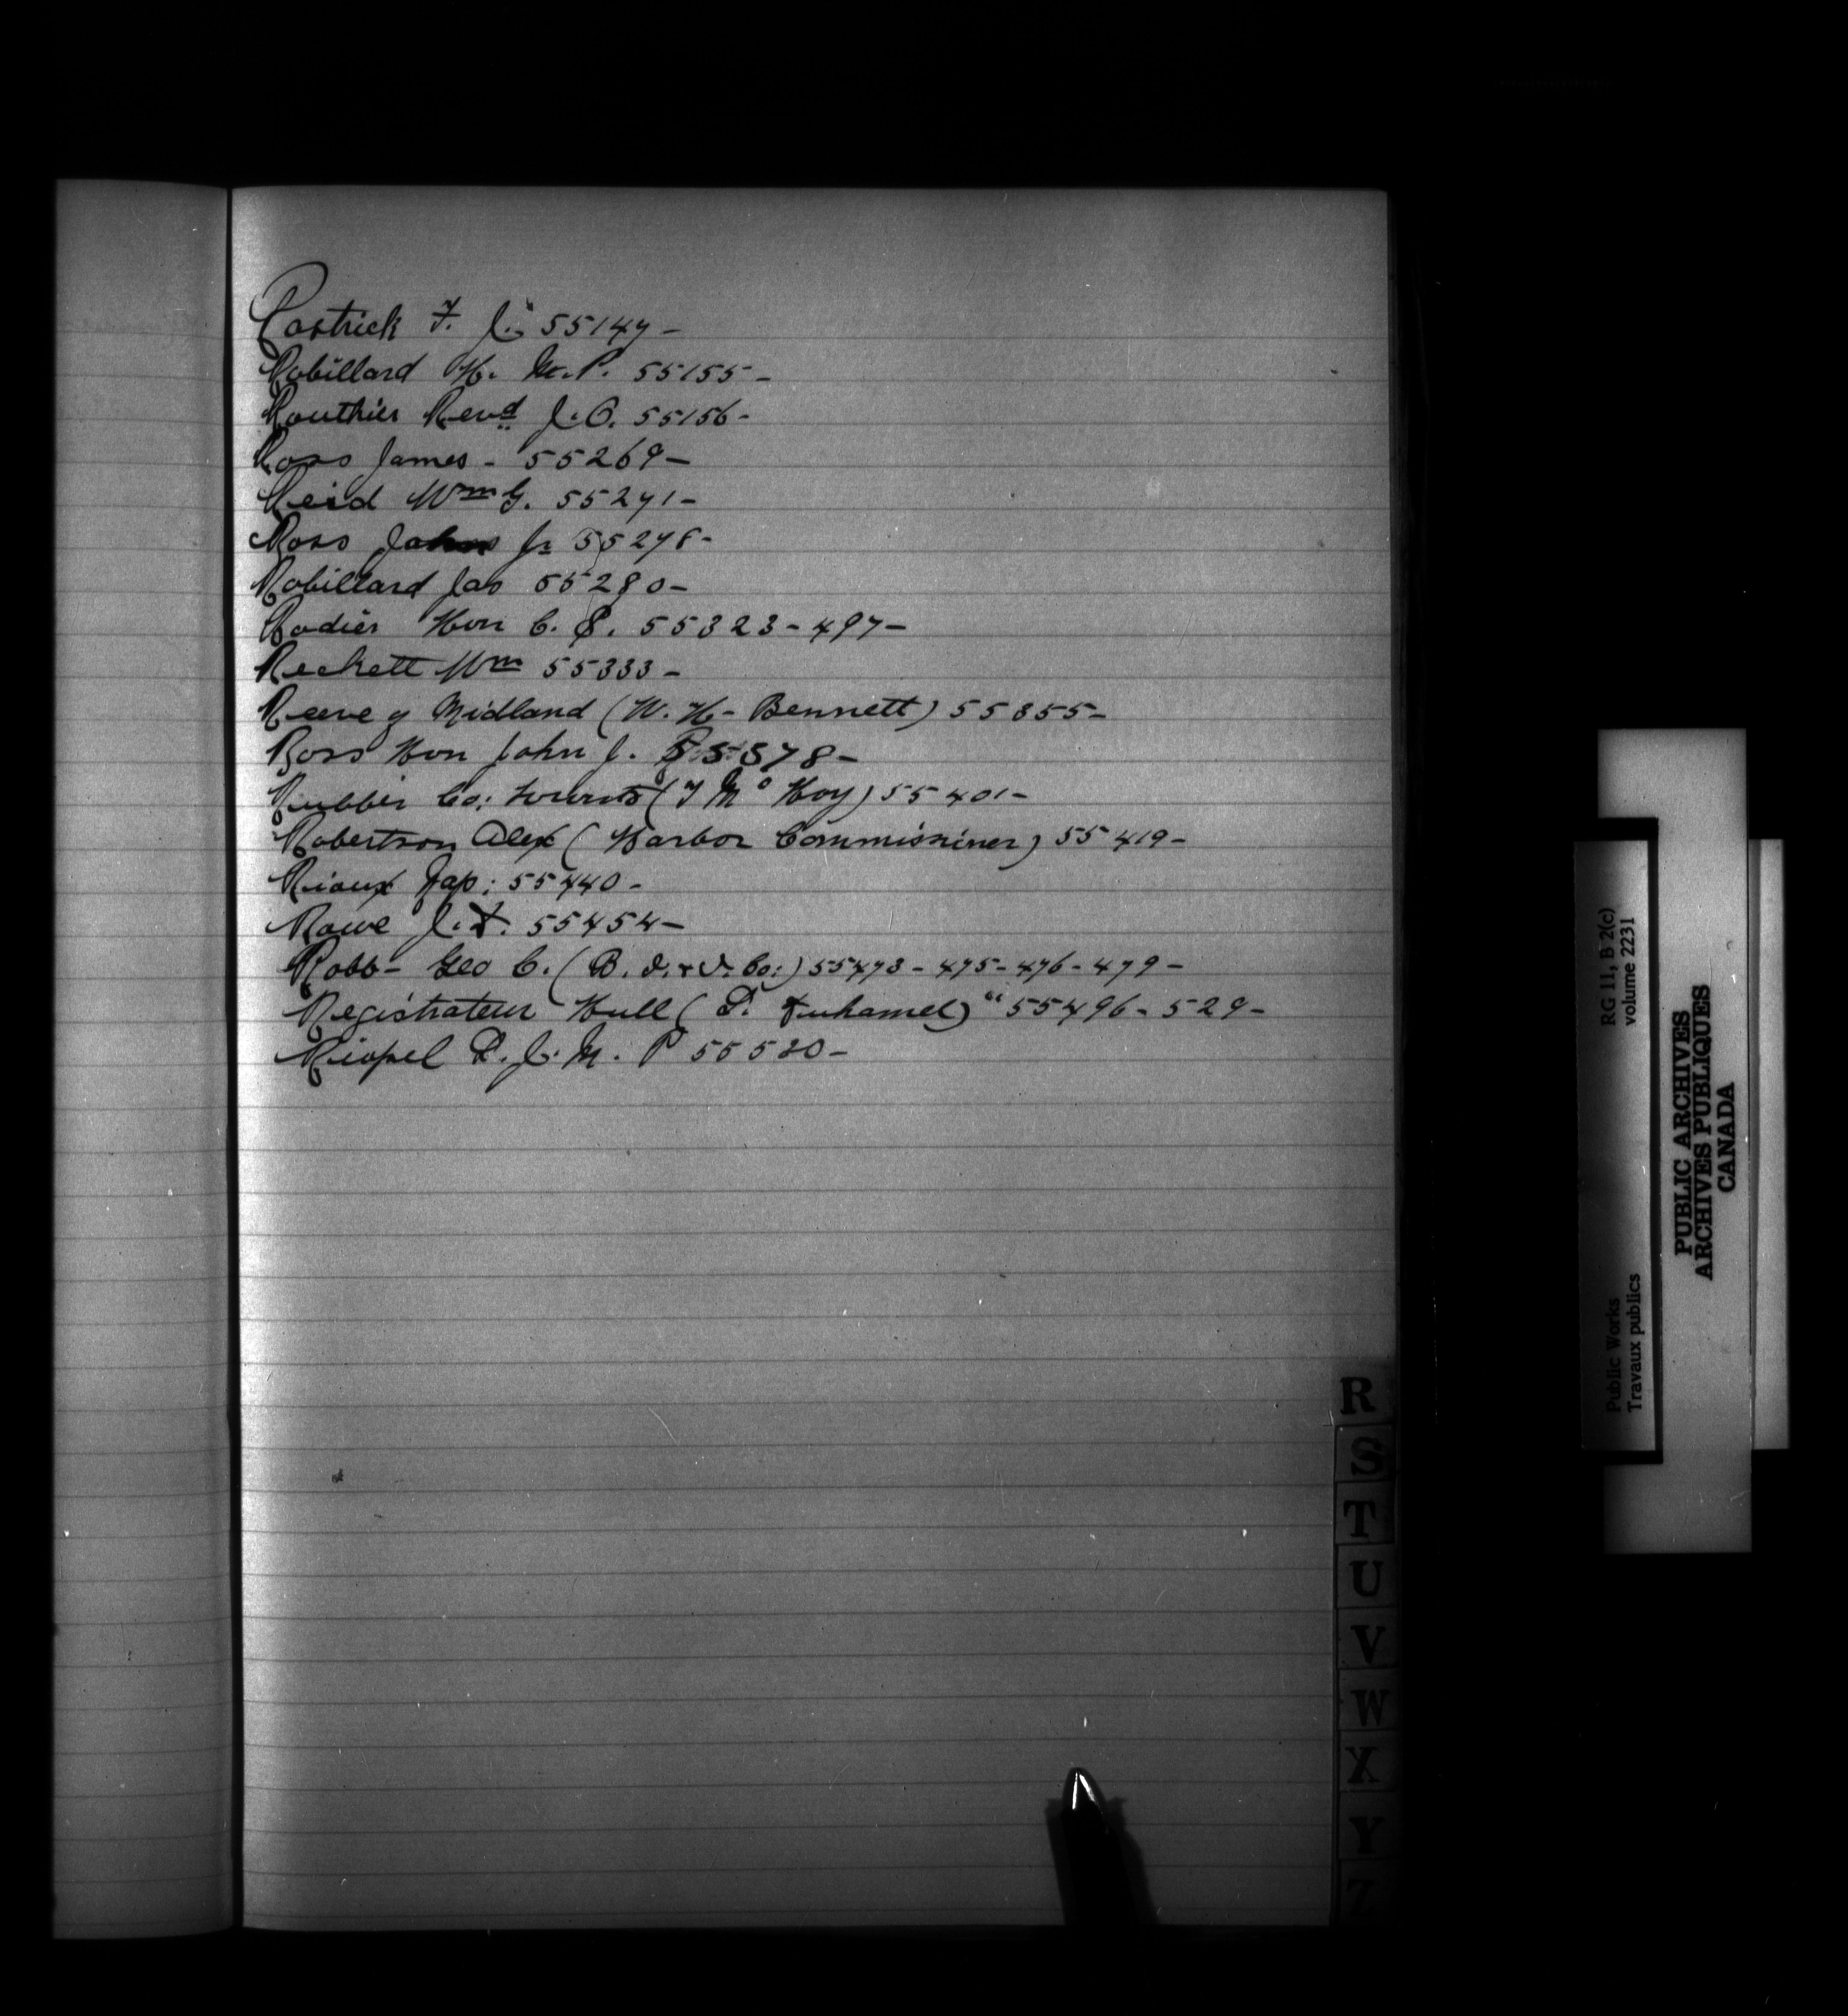 Rastrick F. J. 55147 -
Robillard H. M.P. 55155 -
Routhier Revd J.O. 55156 -
Ross James - 55269 -
Reid Wm G. 55271 -
Ross Jr 55278 -
Robillard Jas 55280 -
Rodier Hon C. S. 55323 - 497 -
Reckett Wm 55333 -
Reeve of Midland (W. H. Bennett) 55355 -
Ross Hon John J. 55378 -
Rubber Co: Toronto (T Mc Hoy) 55401 -
Robertson Alex (Harbor Commissioner) 55419 -
Rioux 55440 -
Rowe J. 55454 -
Robb - Geo C. (B. I. & I. Co:) 55473 - 475 - 476 - 479 -
Registrateur Hull ( Duhamel) 55496 - 529 -
Riopel L. J. M. P 55520 -
R
S
T
U
V
W
X
Y
Z
Public Works RG 11, B 2(c)
Travaux publics volume 2231
PUBLIC ARCHIVES
ARCHIVES PUBLIQUES
CANADA